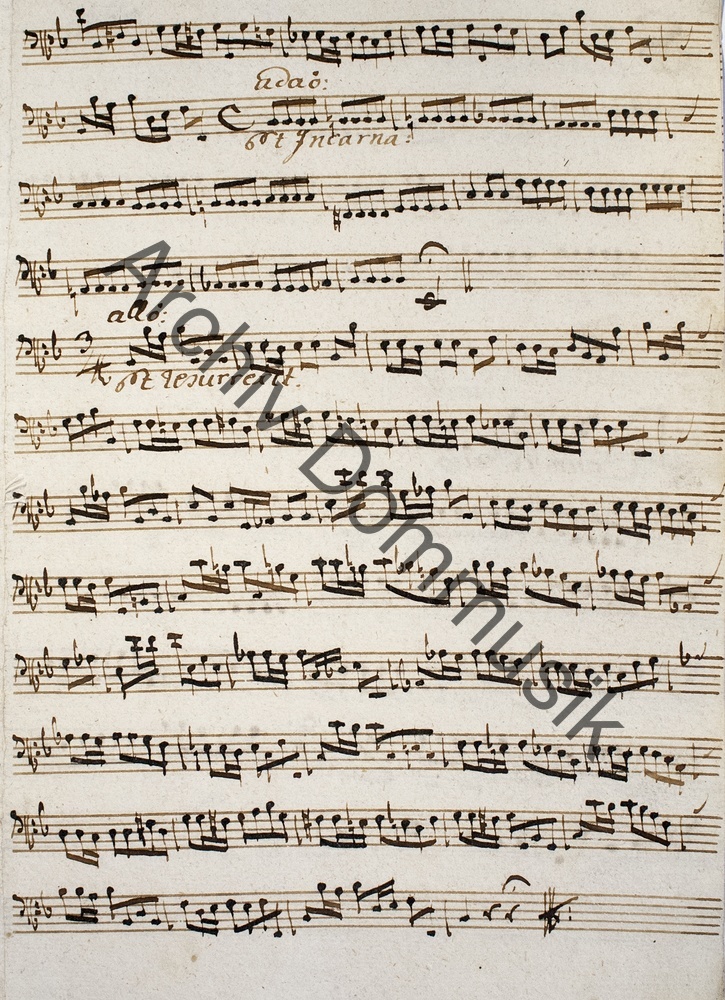 adaō:
C
Et Incarna:
allō:
3/4
Et resurrexit.
Archiv Dommusik